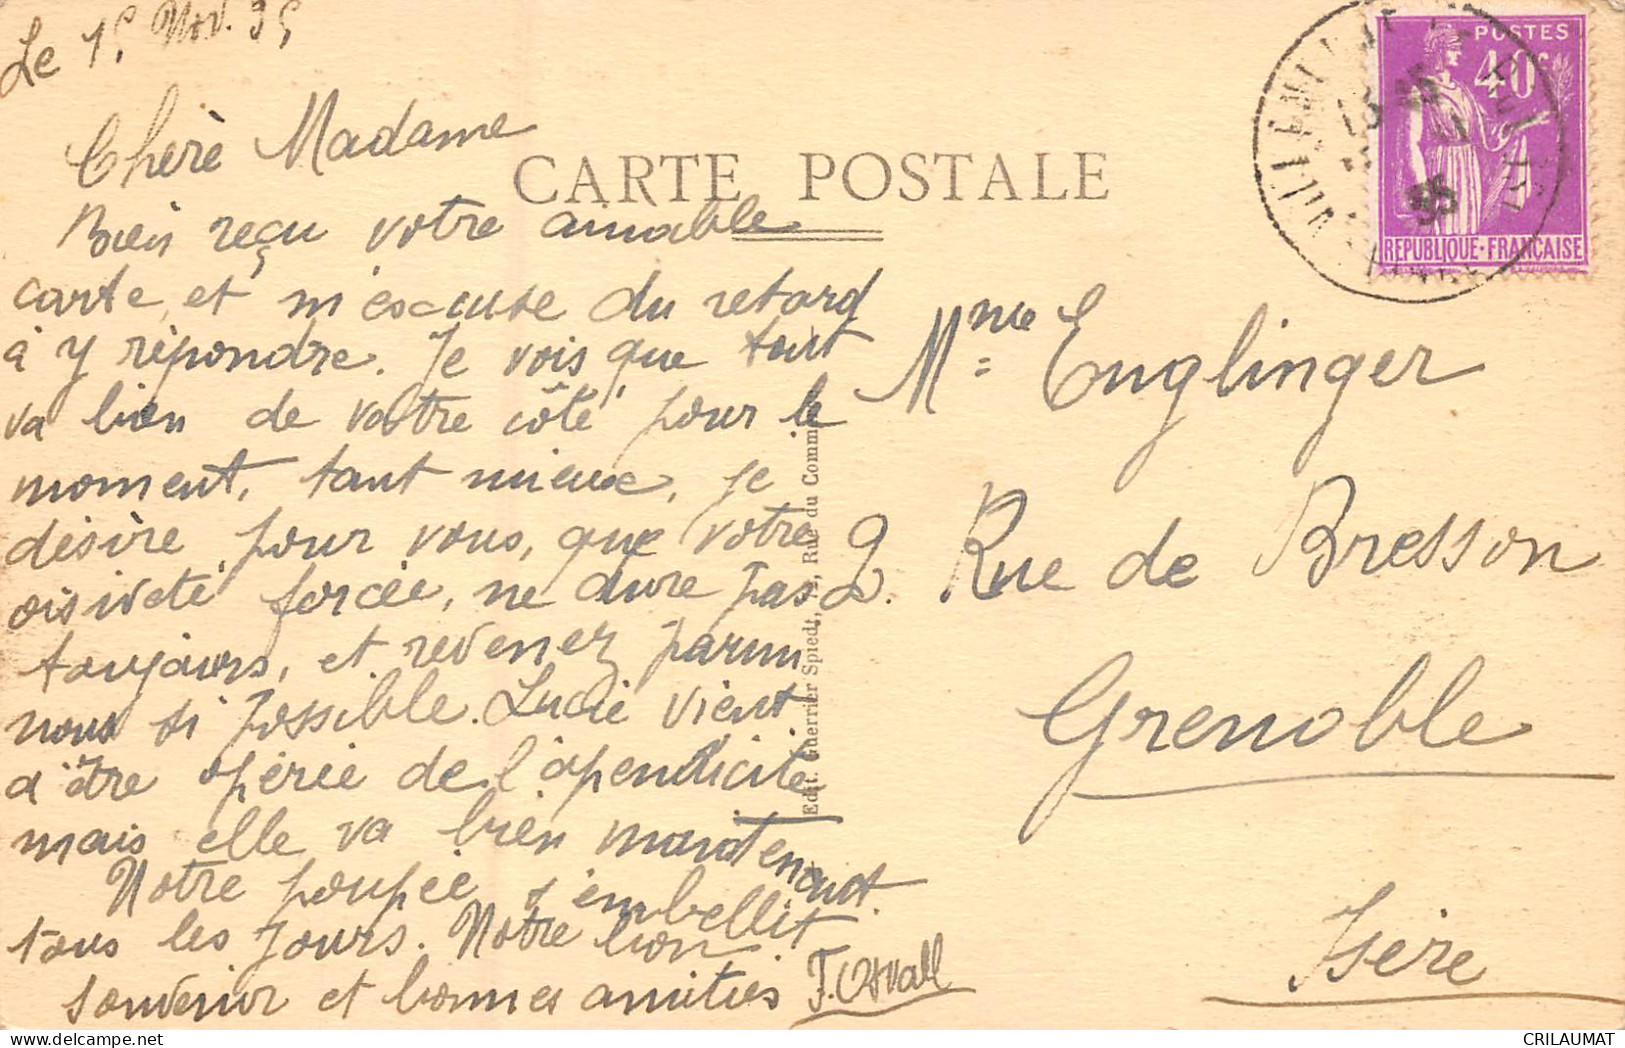 Le 15 Nov. 35
Chère Madame
CARTE POSTALE
Bien reçu votre aimable
carte, et m'escuse du retard
à y répondre. Je vois que tout
va bien de votre côté pour le
moment, tant mieux, je
désire pour vous, que votre
oisiveté forcée, ne dure pas
toujours, et revenez parmi
nous si possible. Lucie vient
d'être opérée de l'apendicite
mais elle va bien maintenant.
Notre poupée s'embellit
tous les jours. Notre bon
souvenir et bonnes amitiés
Edit. Guerrier Spiedt, Rue du Comm
POSTES
40c
REPUBLIQUE·FRANÇAISE
35
Mme Englinger
2. Rue de Bresson
Grenoble
Isère
CRILAUMAT